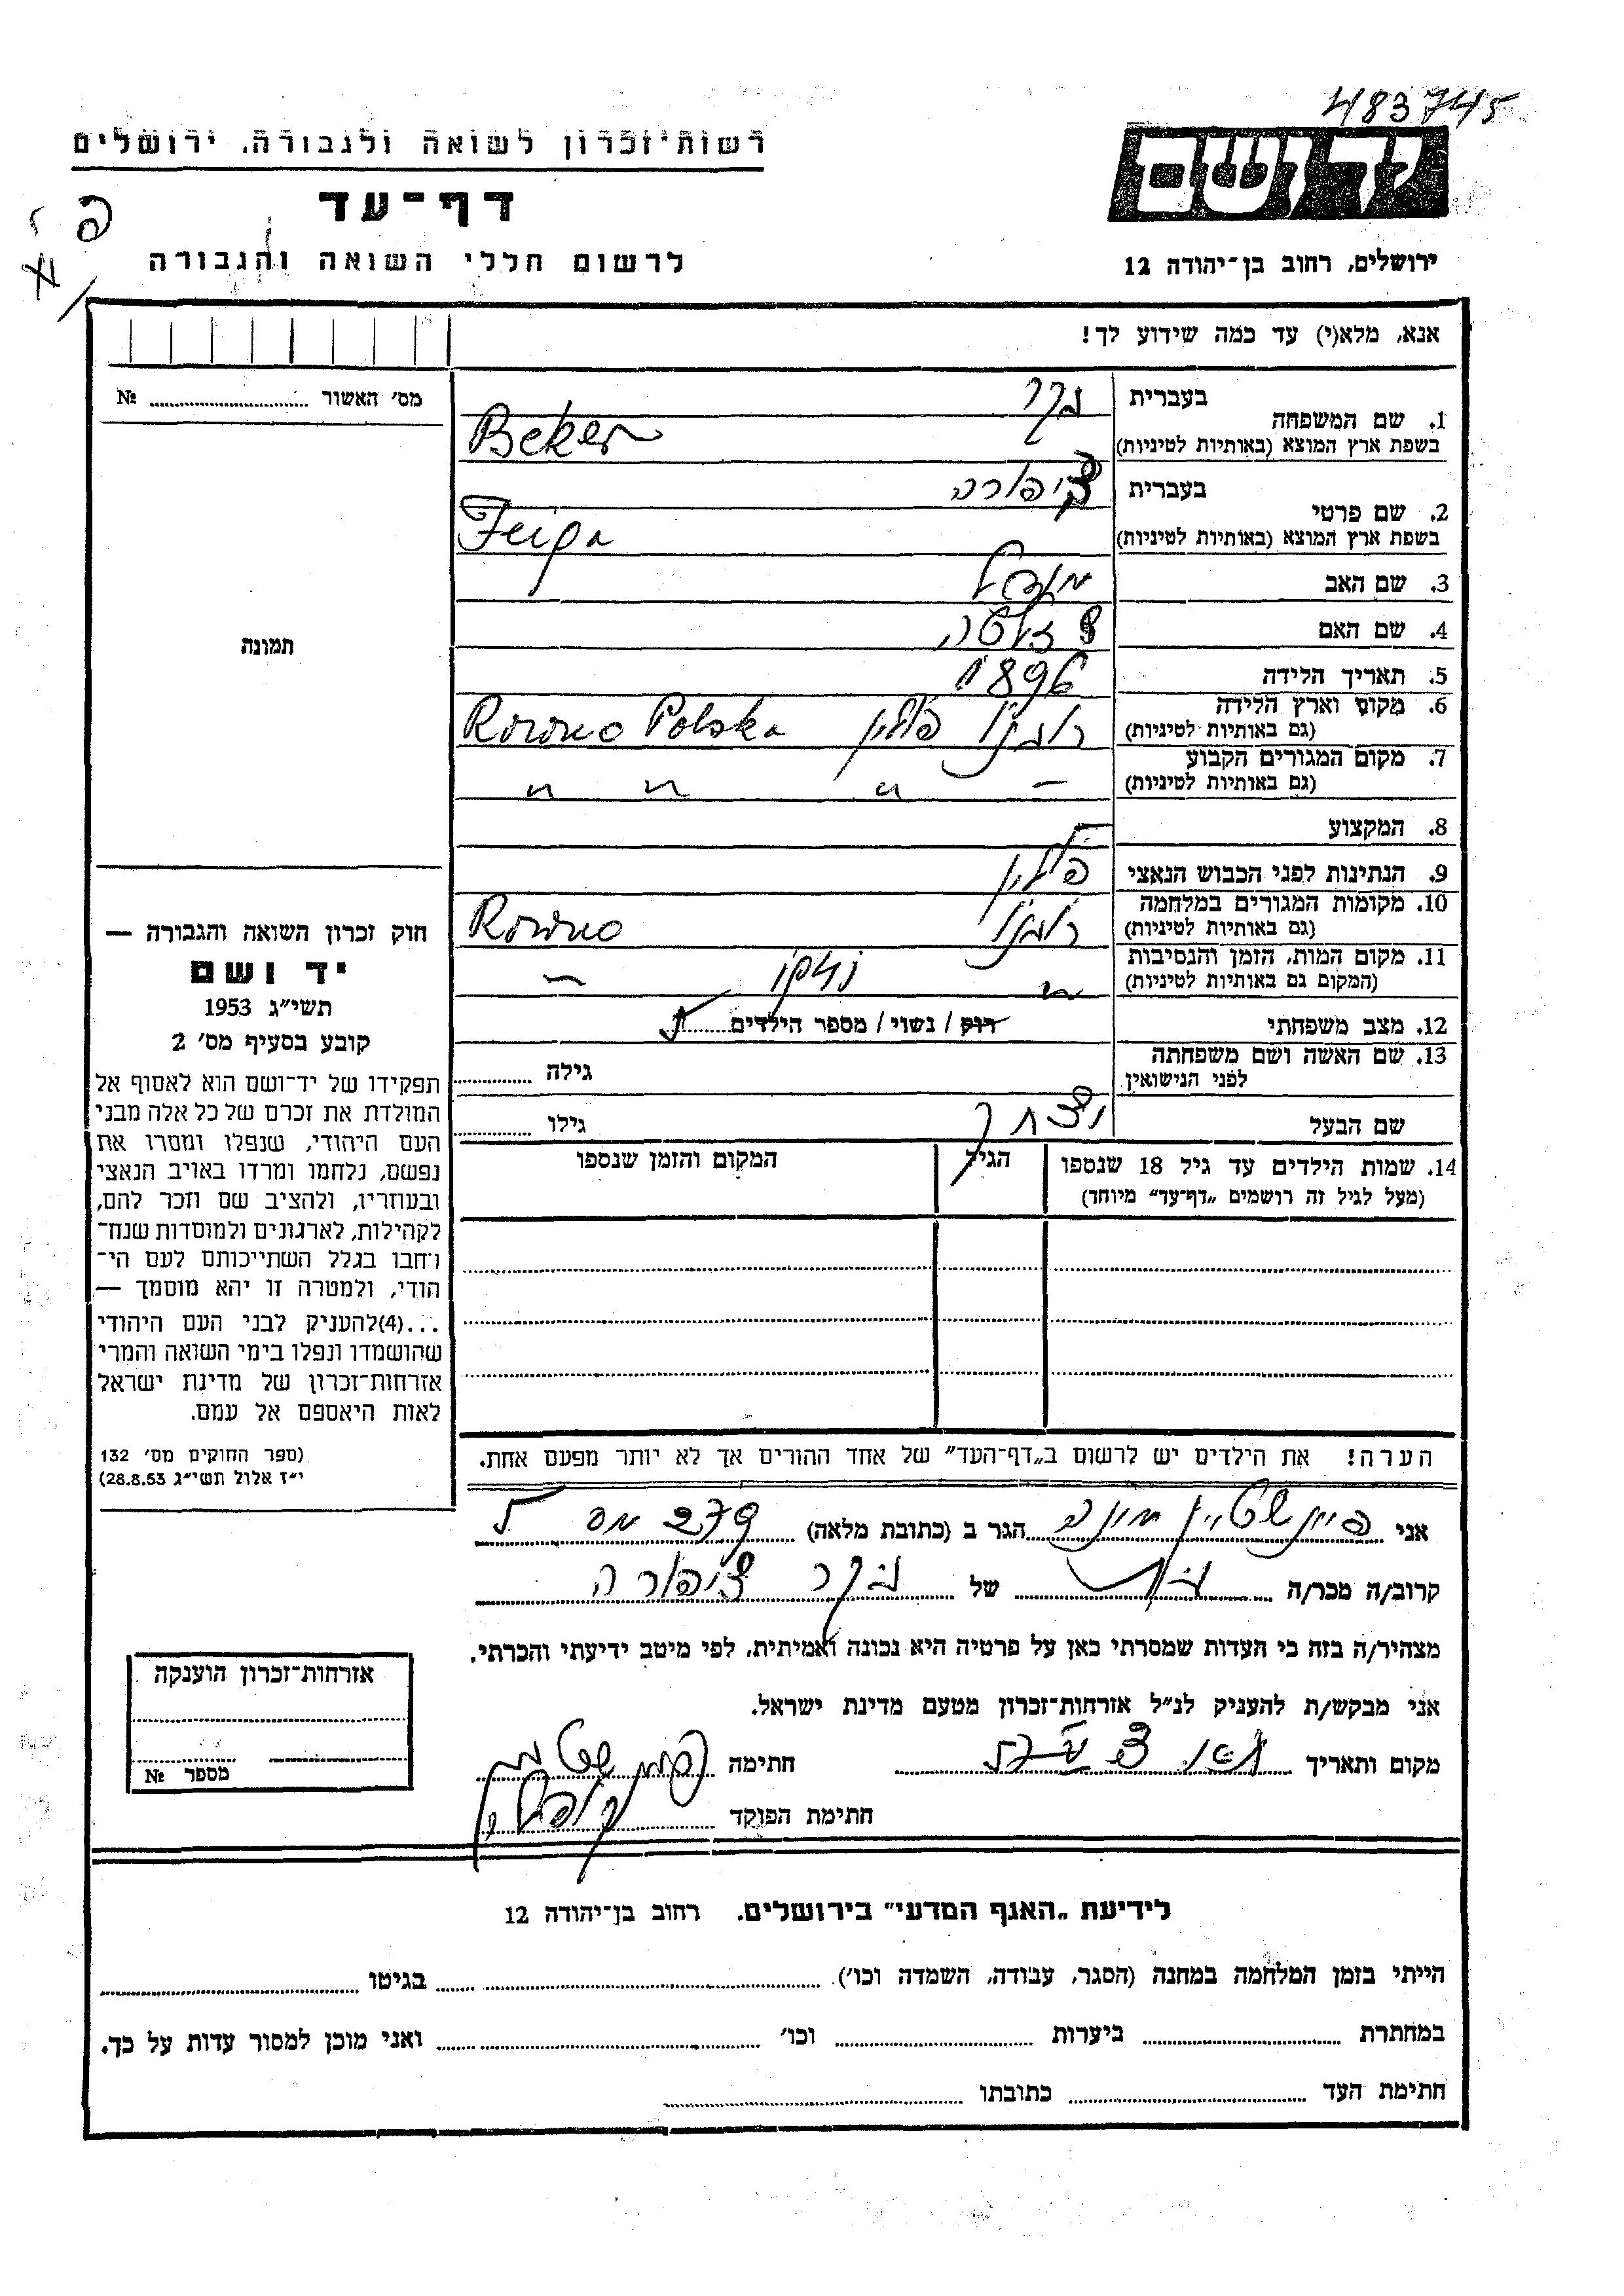 483745
רשות־זכרון לשואה ולגבורה, ירושלים
דף־עד
לרשום חללי השואה והגבורה
ידושם
ירושלים, רחוב בן־יהודה 12
אנא, מלא(י) עד כמה שידוע לך!
מס׳ האשור № 
תמונה
1. שם המשפחה
בעברית בקר
בשפת ארץ המוצא (באותיות לטיניות) Beker
2. שם פרטי
בעברית ציפורה
בשפת ארץ המוצא (באותיות לטיניות) Feiga
3. שם האב
4. שם האם זלטה
5. תאריך הלידה 1896
6. מקום וארץ הלידה רובנו פולין Rowno Polska
(גם באותיות לטיניות)
7. מקום המגורים הקבוע — " " "
(גם באותיות לטיניות)
8. המקצוע
9. הנתינות לפני הכבוש הנאצי פולין
10. מקומות המגורים במלחמה רובנו Rowno
(גם באותיות לטיניות)
11. מקום המות, הזמן והנסיבות
(המקום גם באותיות לטיניות)
12. מצב משפחתי רוק / נשוי / מספר הילדים
13. שם האשה ושם משפחתה גילה
לפני הנישואין
שם הבעל יצחק גילו
14. שמות הילדים עד גיל 18 שנספו הגיל המקום והזמן שנספו
(מעל לגיל זה רושמים „דף־עד” מיוחד)
הערה! את הילדים יש לרשום ב„דף־העד” של אחד ההורים אך לא יותר מפעם אחת.
חוק זכרון השואה והגבורה —
יד ושם
תשי״ג 1953
קובע בסעיף מס׳ 2
תפקידו של יד־ושם הוא לאסוף אל
המולדת את זכרם של כל אלה מבני
העם היהודי, שנפלו ומסרו את
נפשם, נלחמו ומרדו באויב הנאצי
ובעוזריו, ולהציב שם וזכר להם,
לקהילות, לארגונים ולמוסדות שנח־
רחבו בגלל השתייכותם לעם הי־
הודי, ולמטרה זו יהא מוסמך —
...(4)להעניק לבני העם היהודי
שהושמדו ונפלו בימי השואה והמרי
אזרחות־זכרון של מדינת ישראל
לאות היאספם אל עמם.
(ספר החוקים מס׳ 132
י״ז אלול תשי״ג 28.8.53)
אני פיינשטיין הגר ב (כתובת מלאה)
קרוב/ה מכר/ה בת של בקר ציפורה
מצהיר/ה בזה כי העדות שמסרתי כאן על פרטיה היא נכונה ואמיתית, לפי מיטב ידיעתי והכרתי.
אני מבקש/ת להעניק לנ״ל אזרחות־זכרון מטעם מדינת ישראל.
מקום ותאריך חתימה
חתימת הפוקד
אזרחות־זכרון הוענקה
מספר №
לידיעת „האגף המדעי” בירושלים. רחוב בן־יהודה 12
הייתי בזמן המלחמה במחנה (הסגר, עבודה, השמדה וכו׳) בגיטו
במחתרת ביערות וכו׳ ואני מוכן למסור עדות על כך.
חתימת העד כתובתו